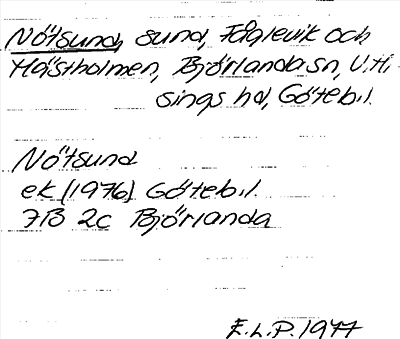 Nötsund, sund, Fåglevik och
Hästholmen, Björlanda sn, V. Hi-
sings hd, Göteb. l.
Nötsund
ek (1976) Göteb. l.
7B 2c Björlanda
E.L.P. 1977